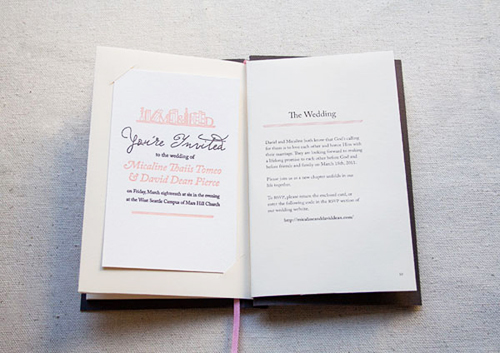 You're Invited
to the wedding of
Micaline Thatis Tomea
& David Dean Pierce
on Friday, March eighteenth at six in the evening
at the West Seattle Campus of Mars Hill Church
The Wedding
David and Micaline both know that God's calling
for them is to love each other and honor Him with
their marriage. They are looking forward to making
a lifelong promise to each other before God and
before friends and family on March 18th, 2011.
Please join us as a new chapter unfolds in our
life together.
To RSVP, please return the enclosed card, or
enter the following code in the RSVP section of
our wedding website.